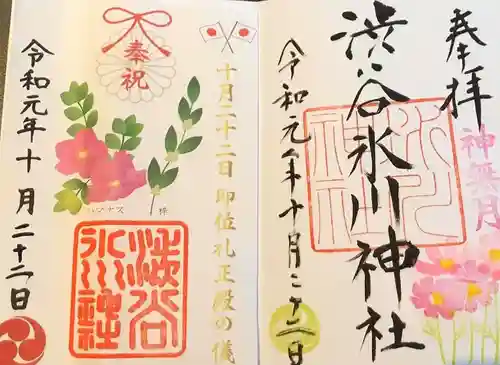 奉拝
渋谷氷川神社
令和元年十月二十二日
神無月
氷川神社
奉祝
十月二十二日 即位礼正殿の儀
ハマナス
榊
令和元年十月二十二日
渋谷氷川神社